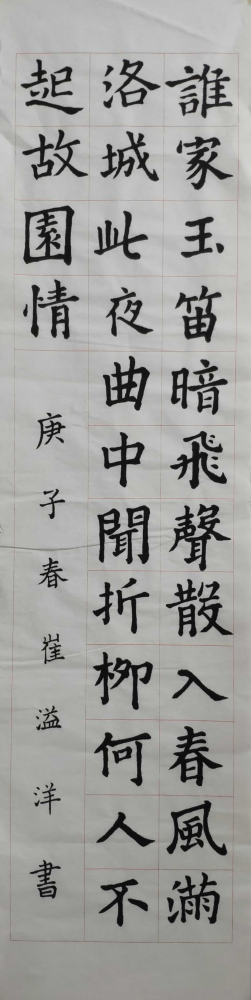 誰家玉笛暗飛聲散入春風滿
洛城此夜曲中聞折柳何人不
起故園情
庚子春崔溢洋書